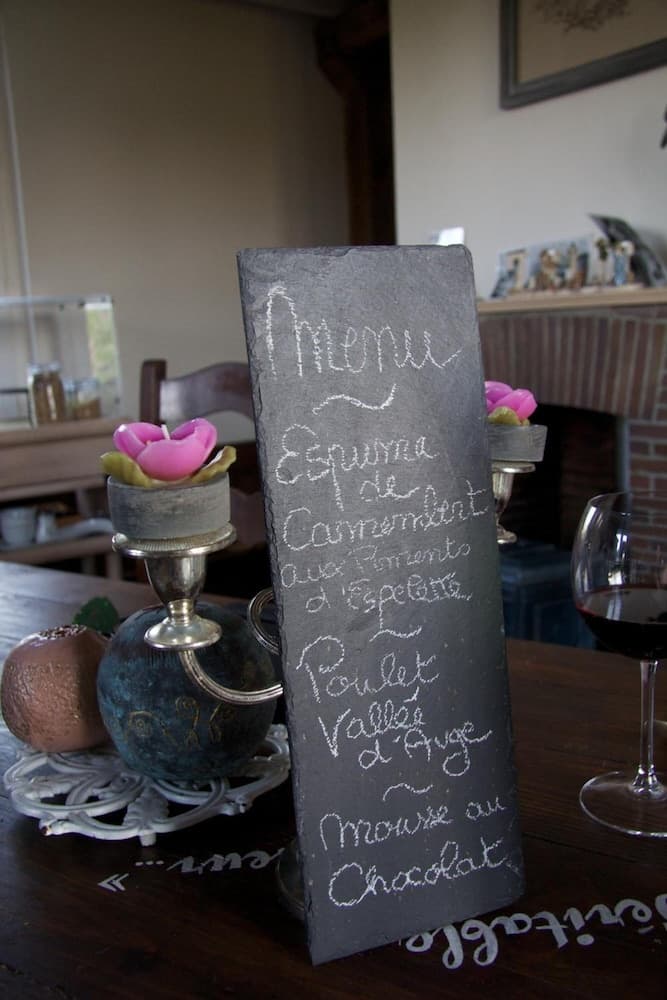 Menu
~
Espuma
de
Camembert
aux Piments
d'Espelette
~
Poulet
Vallée
d'Auge
~
Mousse au
Chocolat
véritable